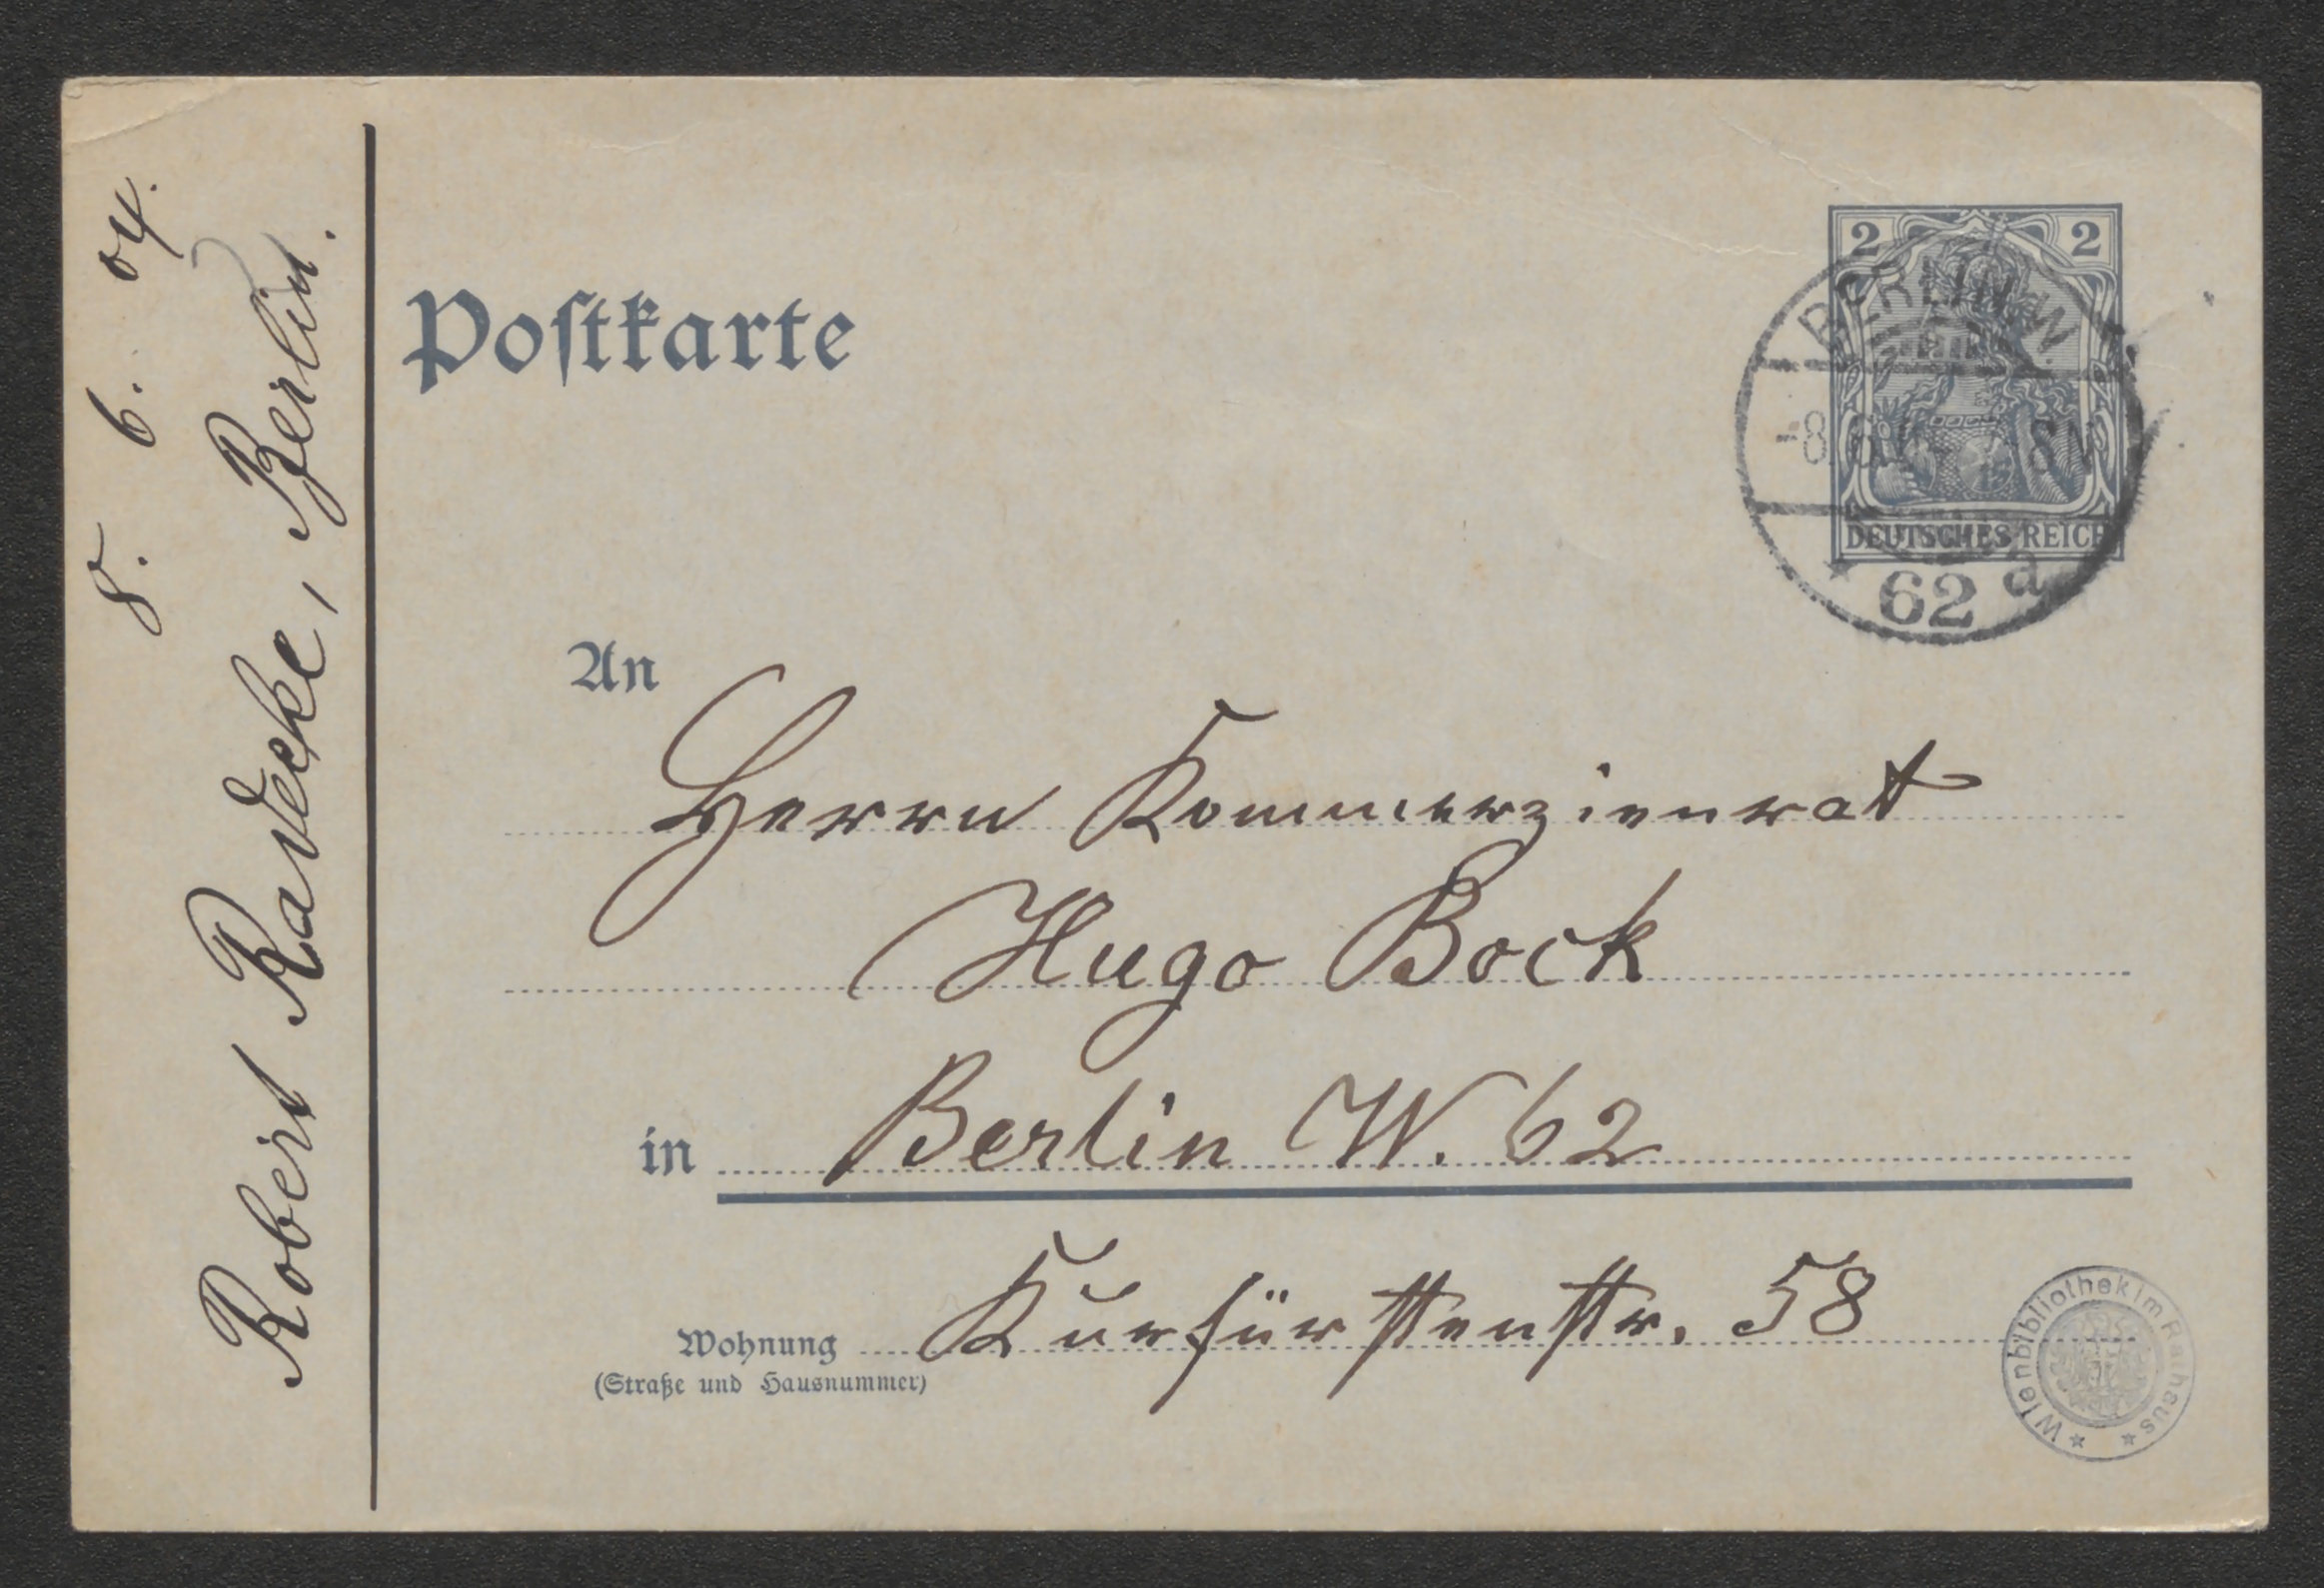 8. 6. 04.
Robert Radecke, Berlin.
Postkarte
2 2
BERLIN W.
-8
DEUTSCHES REICH
62 a
An
Herrn Kommerzienrat
Hugo Bock
in Berlin W. 62
Wohnung Kurfürstenstr. 58
(Straße und Hausnummer)
Wienbibliothek im Rathaus